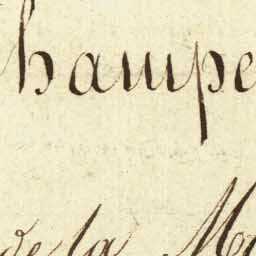 hampe
de la M